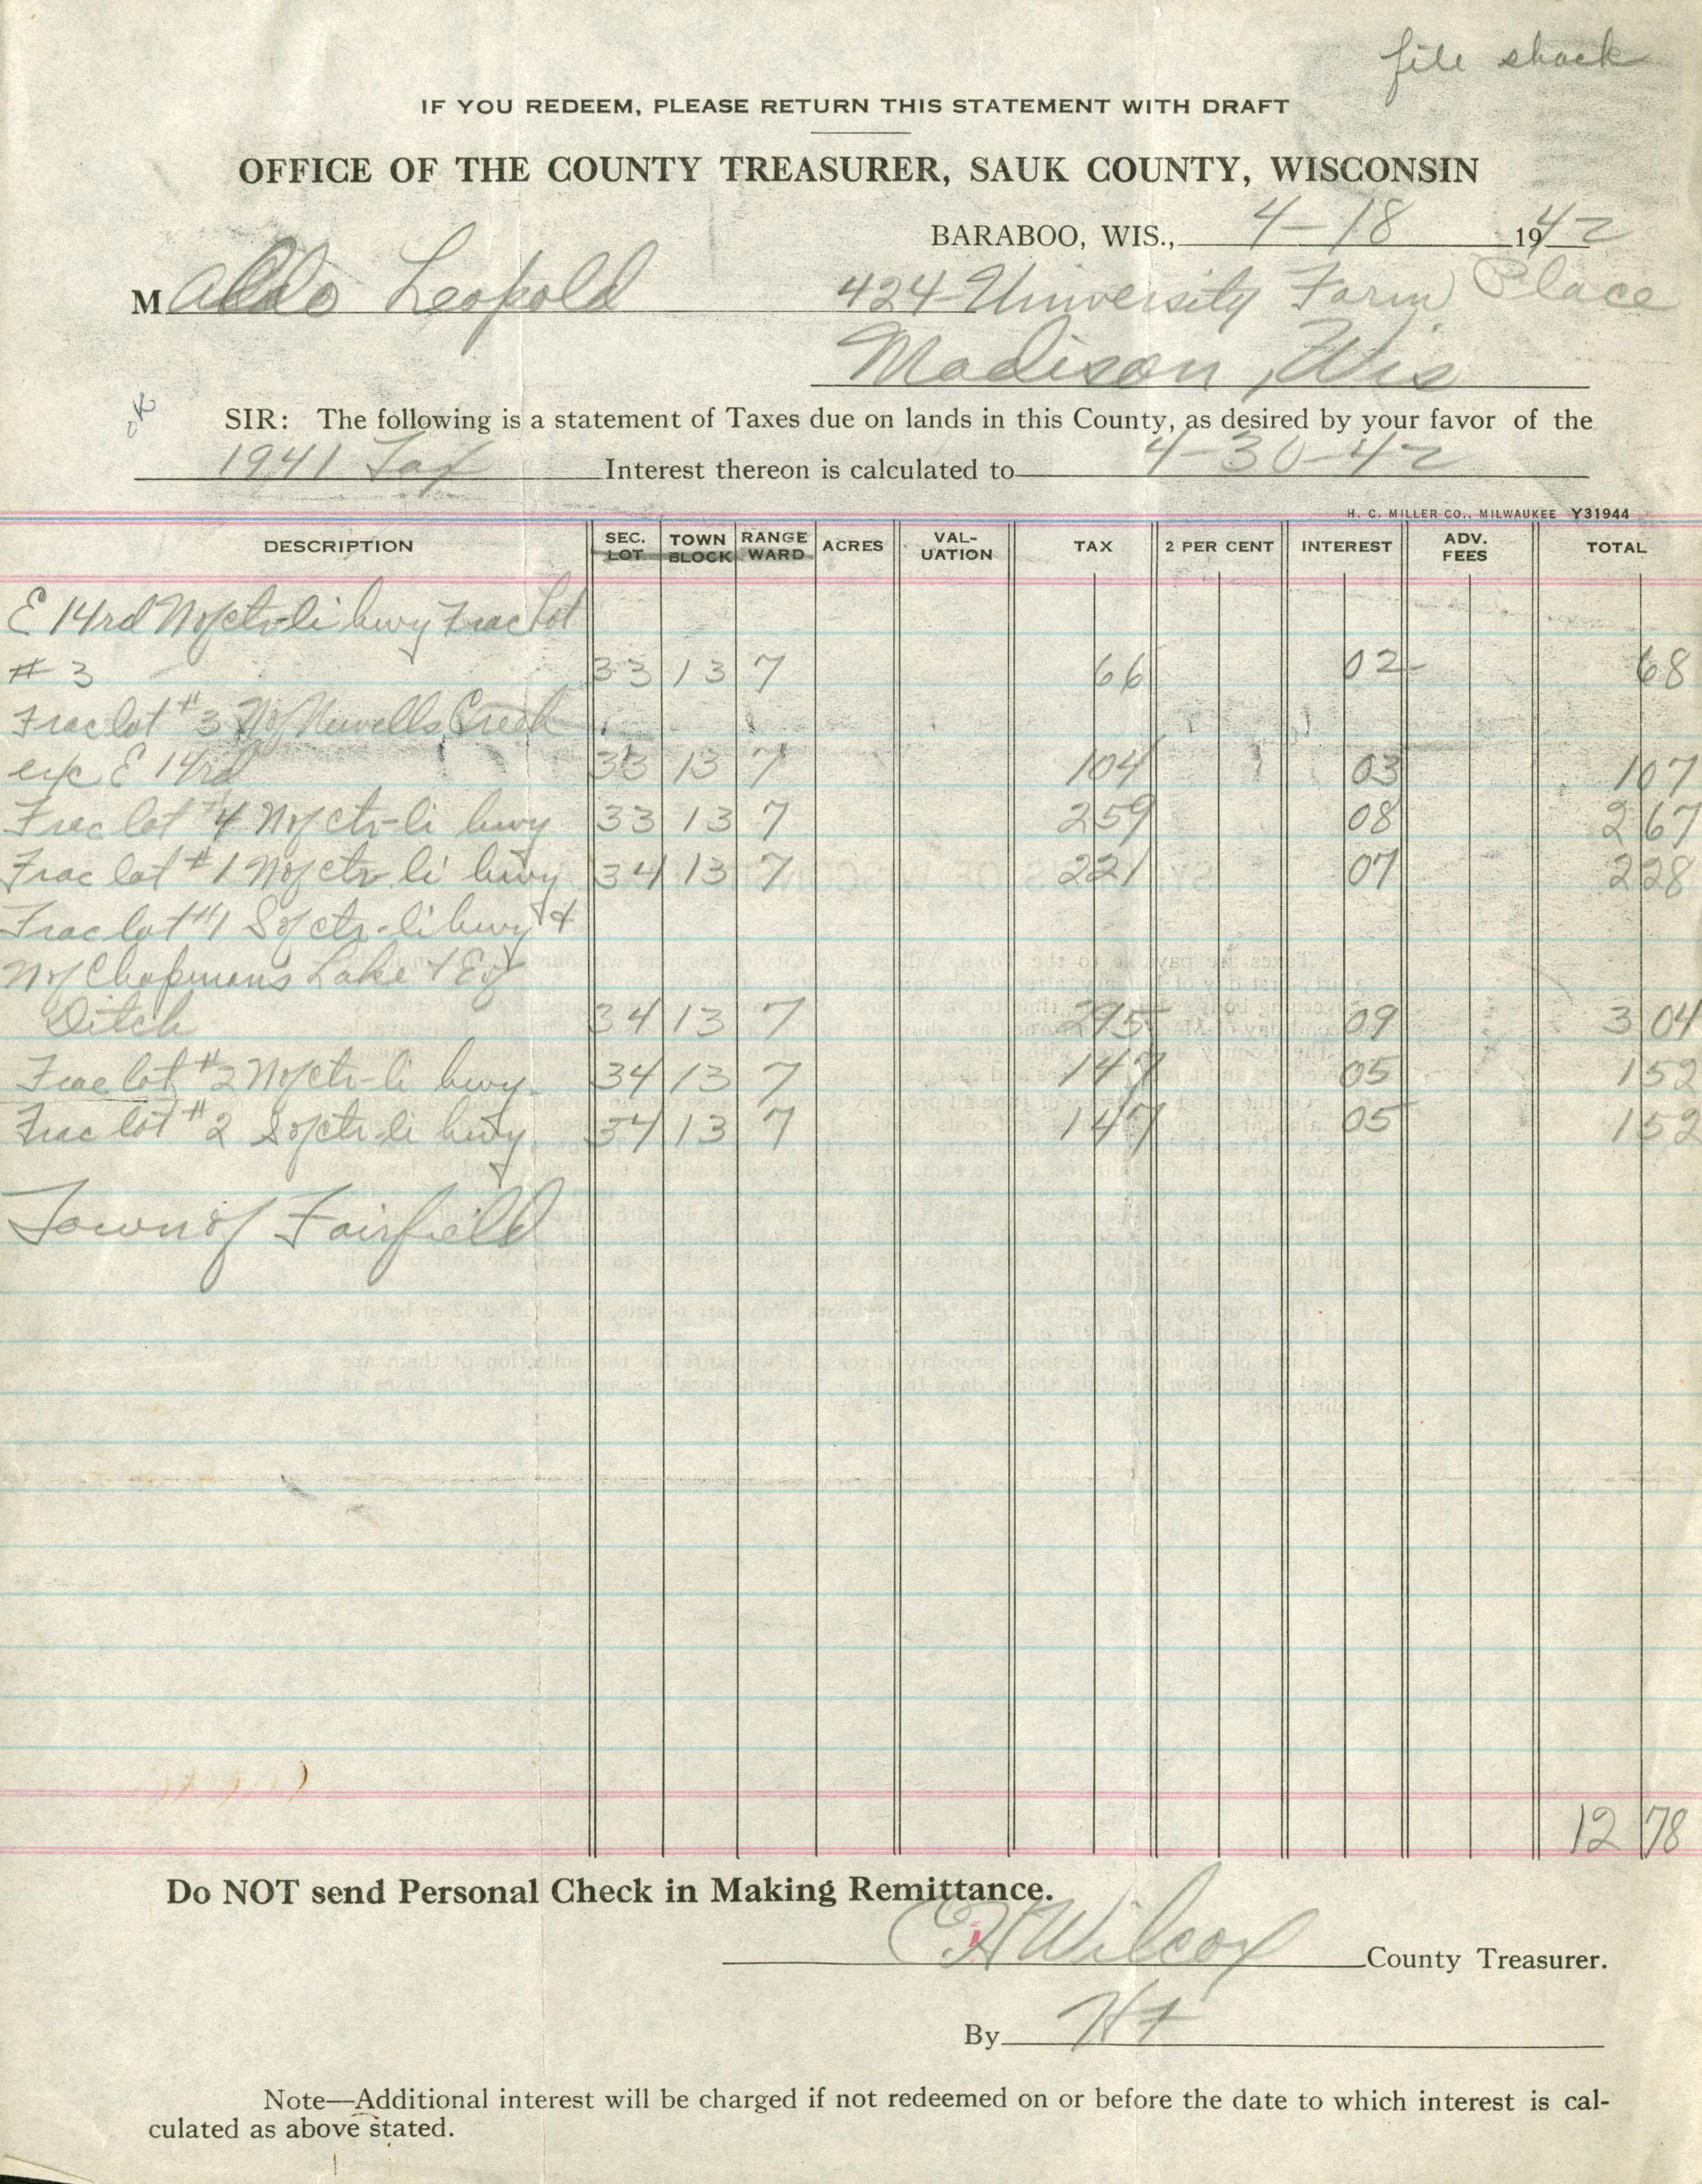 file shack
IF YOU REDEEM, PLEASE RETURN THIS STATEMENT WITH DRAFT
OFFICE OF THE COUNTY TREASURER, SAUK COUNTY, WISCONSIN
BARABOO, WIS., 4-18 1942
M Aldo Leopold 424 University Farm Place
Madison, Wis
OK
SIR: The following is a statement of Taxes due on lands in this County, as desired by your favor of the
1941 Tax Interest thereon is calculated to 4-30-42
H. C. MILLER CO., MILWAUKEE Y31944
DESCRIPTION SEC. LOT TOWN BLOCK RANGE WARD ACRES VAL-UATION TAX 2 PER CENT INTEREST ADV. FEES TOTAL
E 14rd N of ctr-li hwy Frac Lot
# 3 33 13 7 66 02 68
Frac lot #3 N of Newells Creek
exc E 14rd 33 13 7 104 03 107
Frac lot #4 N of ctr-li hwy 33 13 7 259 08 267
Frac lot #1 N of ctr li hwy 34 13 7 221 07 228
Frac lot #1 S of ctr-li hwy &
N of Chapmans Lake & E of
Ditch 34 13 7 295 09 304
Frac lot #2 N of ctr-li hwy. 34 13 7 147 05 152
Frac lot #2 S of ctr-li hwy. 34 13 7 147 05 152
Town of Fairfield
12 78
Do NOT send Personal Check in Making Remittance.
EH Wilcox County Treasurer.
By HF
Note—Additional interest will be charged if not redeemed on or before the date to which interest is cal-
culated as above stated.